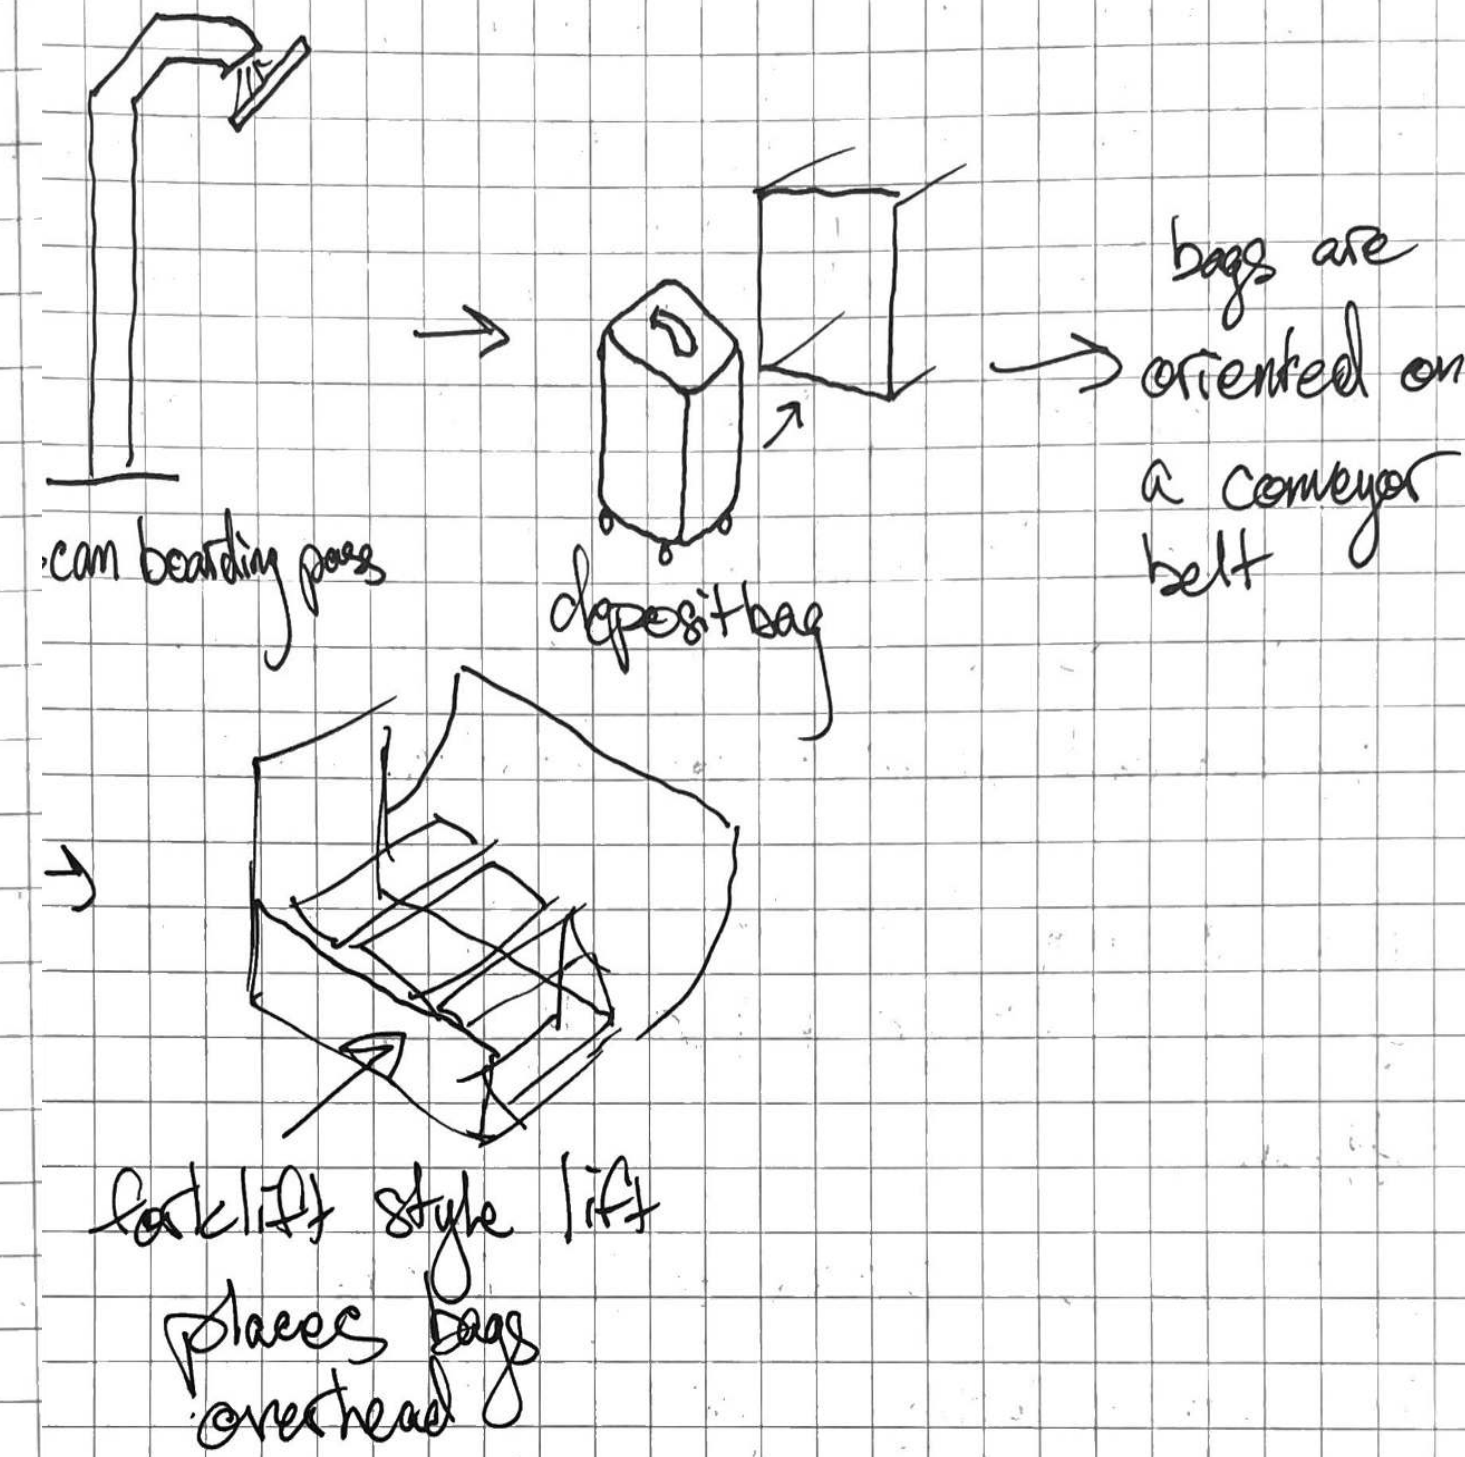 can boarding pass
deposit bag
bags are
oriented on
a conveyor
belt
forklift style lift
places bags
overhead